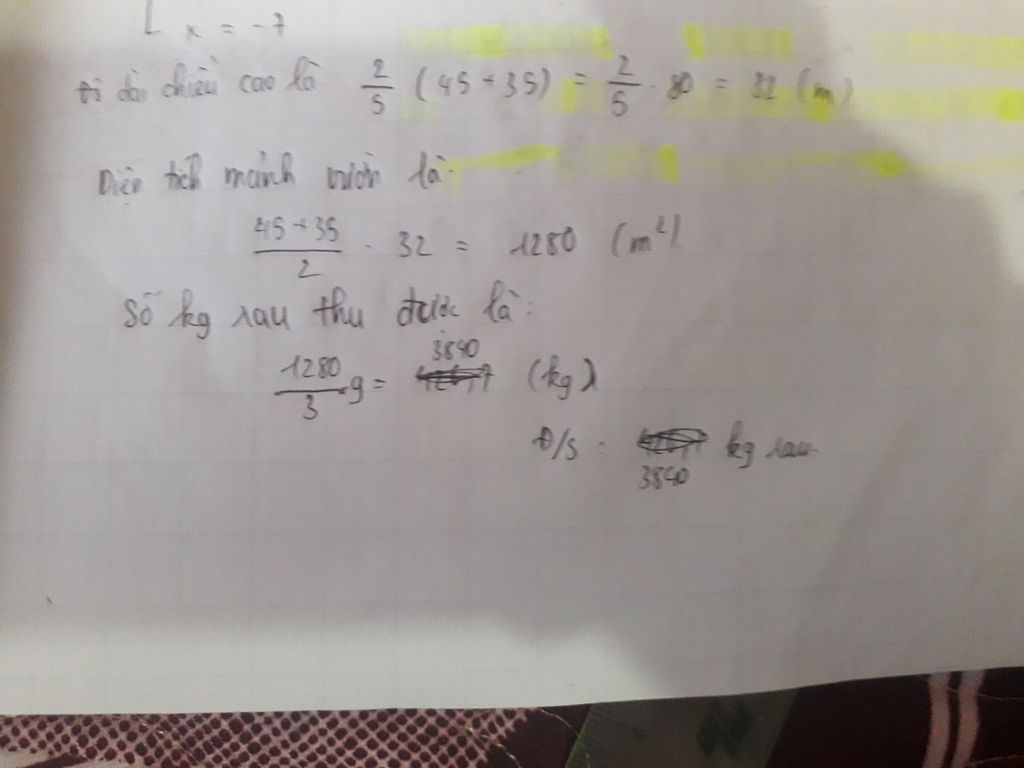 x = -7
độ dài chiều cao là 2/5 (45 + 35) = 2/5 . 80 = 32 (m)
Diện tích mảnh vườn là:
45 + 35 / 2 . 32 = 1280 (m²)
Số kg rau thu được là:
1280/3 . 9 = 3840 (kg)
Đ/S : 3840 kg rau